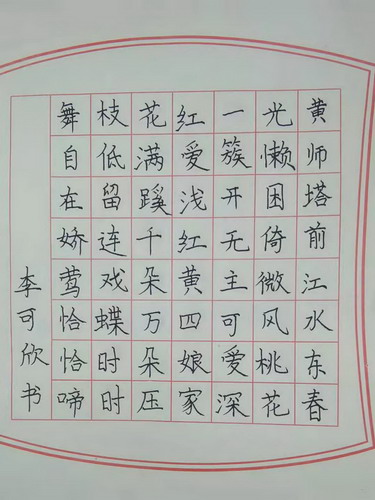 黄师塔前江水东春
光懒困倚微风桃花
一簇开无主可爱深
红爱浅红黄四娘家
花满蹊千朵万朵压
枝低留连戏蝶时时
舞自在娇莺恰恰啼
李可欣书